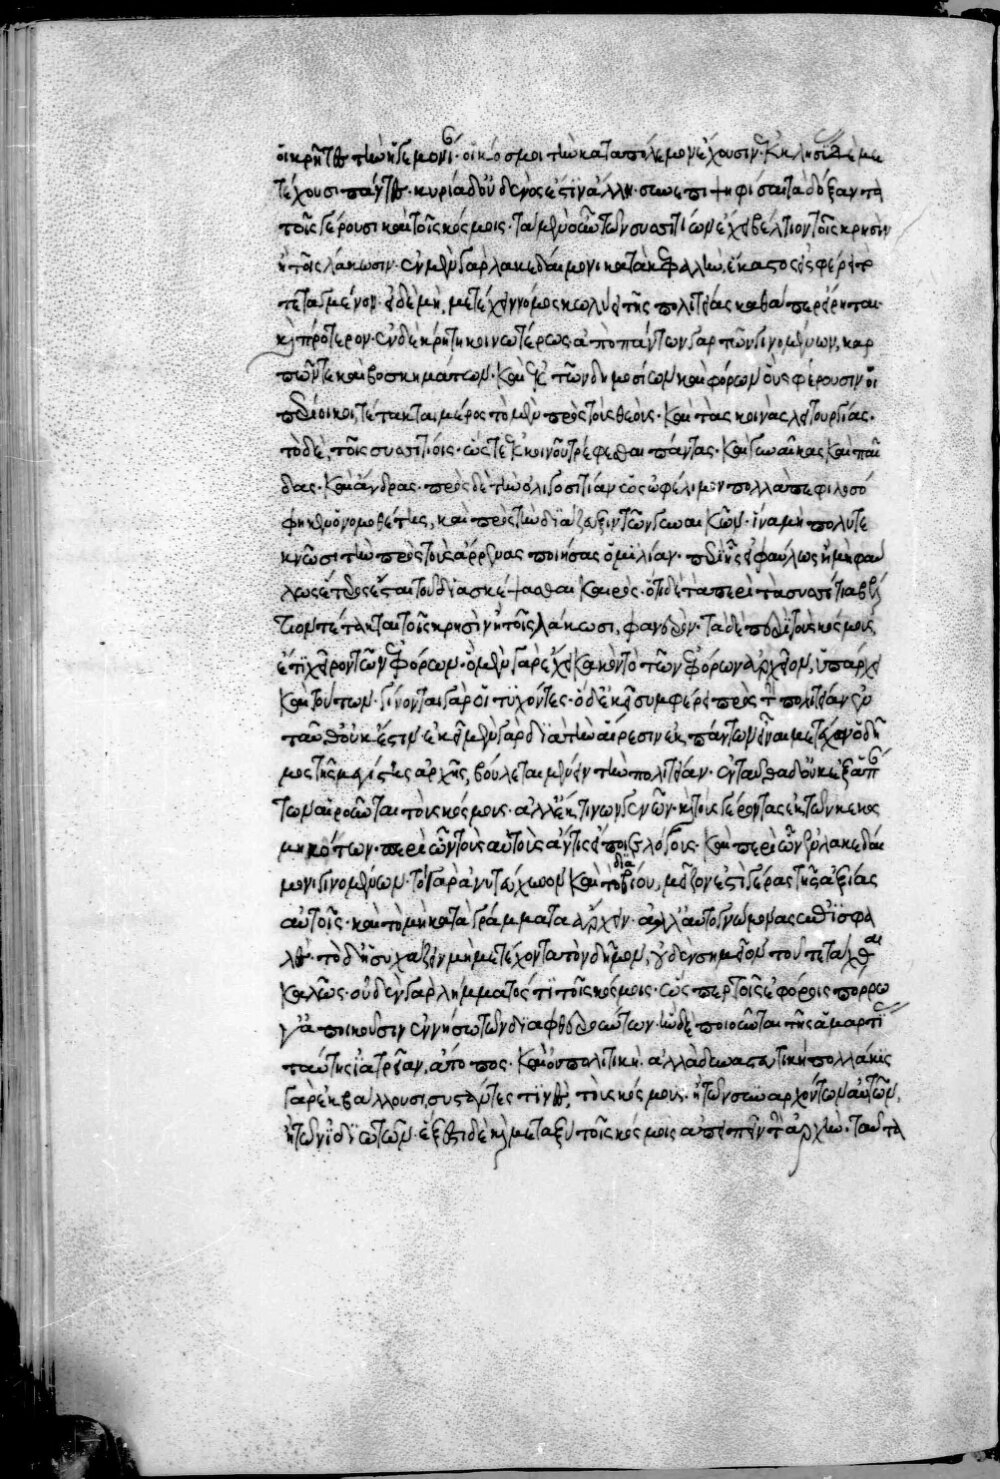 οἱ κρῆτες τὴν ἡγεμονίαν· οἱ κόσμοι τὴν κατὰ πόλεμον ἔχουσιν· ἐκκλησίας δὲ με
τέχουσι πάντες· κυρία δ' οὐδενός ἐστιν ἀλλ' ἢ συνεπιψηφίσαι τὰ δόξαντα
τοῖς γέρουσι καὶ τοῖς κόσμοις· τὰ μὲν οὖν τῶν συσσιτίων ἔχει βέλτιον τοῖς κρησὶν
ἢ τοῖς λάκωσιν· ἐν μὲν γὰρ λακεδαίμονι κατὰ κεφαλὴν ἕκαστος εἰσφέρει τὸ
τεταγμένον· εἰ δὲ μὴ, μετέχειν νόμος κωλύει τῆς πολιτείας καθάπερ εἴρηται
καὶ πρότερον· ἐν δὲ κρήτῃ κοινοτέρως ἀπὸ πάντων γὰρ τῶν γινομένων, καρ
πῶν τε καὶ βοσκημάτων· καὶ ἐκ τῶν δημοσίων καὶ φόρων οὓς φέρουσιν οἱ
περίοικοι, τέτακται μέρος τὸ μὲν πρὸς τοὺς θεούς· καὶ τὰς κοινὰς λειτουργίας·
τὸ δὲ, τοῖς συσσιτίοις· ὥστε ἐκ κοινοῦ τρέφεσθαι πάντας· καὶ γυναῖκας καὶ παῖ
δας· καὶ ἄνδρας· πρὸς δὲ τὴν ὀλιγοσιτίαν ὡς ὠφέλιμον πολλὰ πεφιλοσό
φηκεν ὁ νομοθέτης, καὶ πρὸς τὴν διάζευξιν τῶν γυναικῶν· ἵνα μὴ πολυτε
κνῶσι τὴν πρὸς τοὺς ἄρρενας ποιήσας ὁμιλίαν· περὶ ἧς εἰ φαύλως ἢ μὴ φαύ
λως ἕτερος ἔσται τοῦ διασκέψασθαι καιρός· ὅτι δὲ τὰ περὶ τὰ συσσίτια βέλ
τιον τέτακται τοῖς κρησὶν ἢ τοῖς λάκωσι, φανερόν· τὰ δὲ περὶ τοὺς κόσμους,
ἔτι χεῖρον τῶν ἐφόρων· ὃ μὲν γὰρ ἔχει κακὸν τὸ τῶν ἐφόρων ἀρχεῖον, ὑπάρχει
καὶ τούτων· γίνονται γὰρ οἱ τυχόντες· ὃ δ' ἐκεῖ συμφέρει πρὸς τὴν πολιτείαν ἐν
ταῦθ' οὐκ ἔστιν ἐκεῖ μὲν γὰρ διὰ τὸ τὴν αἵρεσιν ἐκ πάντων εἶναι μετέχων ὁ δῆ
μος τῆς μεγίστης ἀρχῆς, βούλεται μένειν τὴν πολιτείαν· ἐνταῦθα δ' οὐκ ἐξ ἁπάν
των αἱροῦνται τοὺς κόσμους· ἀλλ' ἐκ τινῶν γενῶν· καὶ τοὺς γέροντας ἐκ τῶν κεκοσ
μηκότων· περὶ ὧν τοὺς αὐτοὺς ἄν τις εἴποι λόγους· καὶ περὶ ὧν ἐν λακεδαί
μονι γινομένων· τὸ γὰρ ἀνυπεύθυνον καὶ τὸ διὰ βίου, μεῖζόν ἐστι γέρας τῆς ἀξίας
αὐτοῖς· καὶ τὸ μὴ κατὰ γράμματα ἄρχειν· ἀλλ' αὐτογνώμονας ἐπισφα
λές· τὸ δ' ἡσυχάζειν μὴ μετέχοντα τὸν δῆμον, οὐδὲν σημεῖον τοῦ τετάχθαι
καλῶς· οὐδὲν γὰρ λήμματός τι τοῖς κόσμοις· ὥσπερ τοῖς ἐφόροις πόρρω
γ' ἀποικοῦσιν ἐν νήσῳ τῶν διαφθερούντων· ἣν δὲ ποιοῦνται τῆς ἁμαρτίας
ταύτης ἰατρείαν, ἄτοπος· καὶ οὐ πολιτικὴ ἀλλὰ δυναστευτικὴ πολλάκις
γὰρ ἐκβάλλουσι συστάντες τινὲς, τοὺς κόσμους· ἢ τῶν συναρχόντων αὐτῶν,
ἢ τῶν ἰδιωτῶν· ἔξεστι δὲ καὶ μεταξὺ τοῖς κόσμοις ἀπειπεῖν τὴν ἀρχήν· ταῦτα